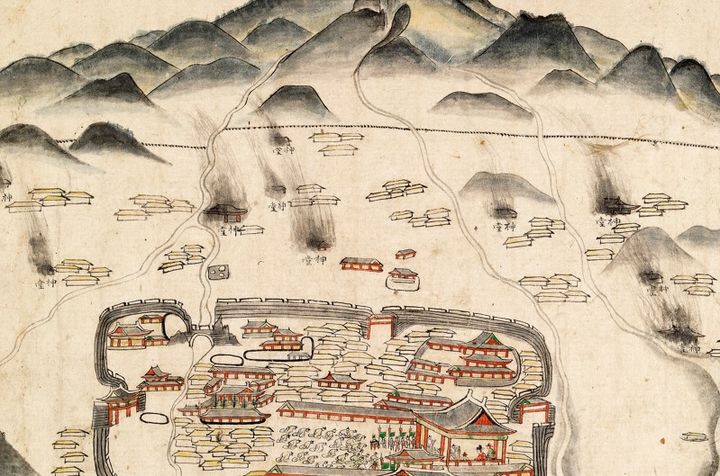 神堂
神
神堂
神堂
神堂
神堂
神堂
神堂
神堂
神堂